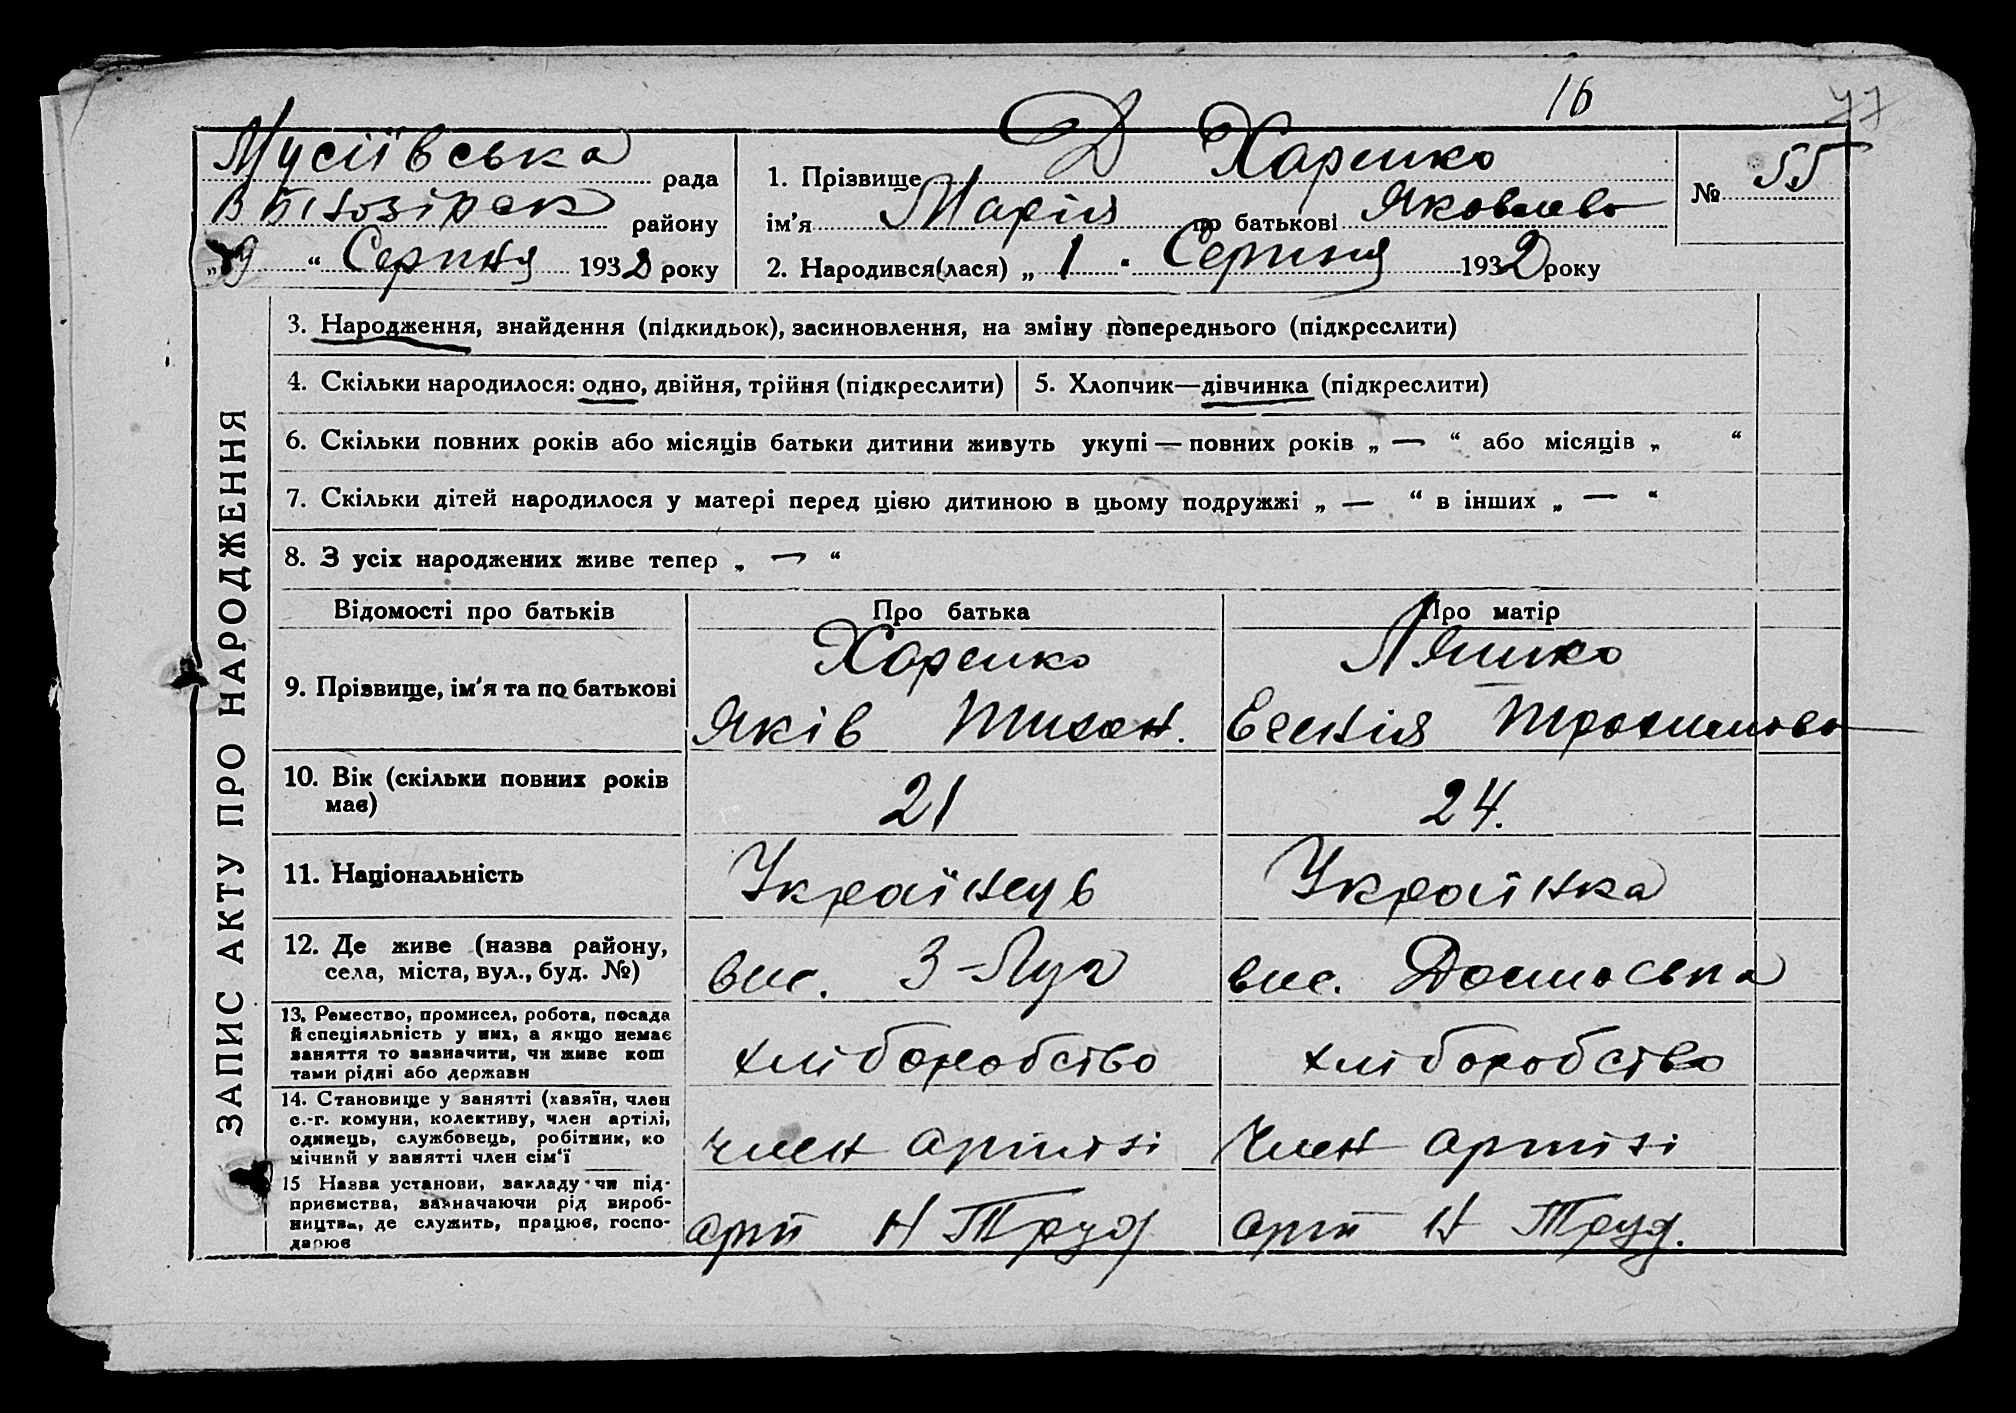 16
77
Мусіївська рада
В Білозірськ району
„9“ Серпня 1932 року
Д
1. Прізвище Харенко
ім'я Марія по батькові Яковлево
2. Народився(лася) „1“ Серпня 1932 року
№ 55
ЗАПИС АКТУ ПРО НАРОДЖЕННЯ
3. Народження, знайдення (підкидьок), засиновлення, на зміну попереднього (підкреслити)
4. Скільки народилося: одно, двійня, трійня (підкреслити)
5. Хлопчик—дівчинка (підкреслити)
6. Скільки повних років або місяців батьки дитини живуть укупі — повних років „ — “ або місяців „ “
7. Скільки дітей народилося у матері перед цією дитиною в цьому подружжі „ — “ в інших „ — “
8. З усіх народжених живе тепер „ — “
Відомості про батьків
Про батька
Про матір
9. Прізвище, ім'я та по батькові
Харенко
Яків Тихон.
Ляшко
Евгенія Трохимово
10. Вік (скільки повних років
має)
21
24.
11. Національність
Українець
Українка
12. Де живе (назва району,
села, міста, вул., буд. №)
вис. З-Луг
вис.
13. Ремество, промисел, робота, посада
й спеціяльність у них, а якщо немає
заняття то зазначити, чи живе кош
тами рідні або держави
хліборобство
хліборобство
14. Становище у занятті (хазяїн, член
с.-г. комуни, колективу, член артілі,
одинець, службовець, робітник, ко
мічний у занятті член сім'ї
член артілі
Член артілі
15 Назва установи, закладу чи під-
приємства, зазначаючи рід вироб-
ництва, де служить, працює, госпо-
дарює
арт Н Труд
арт Н Труд.